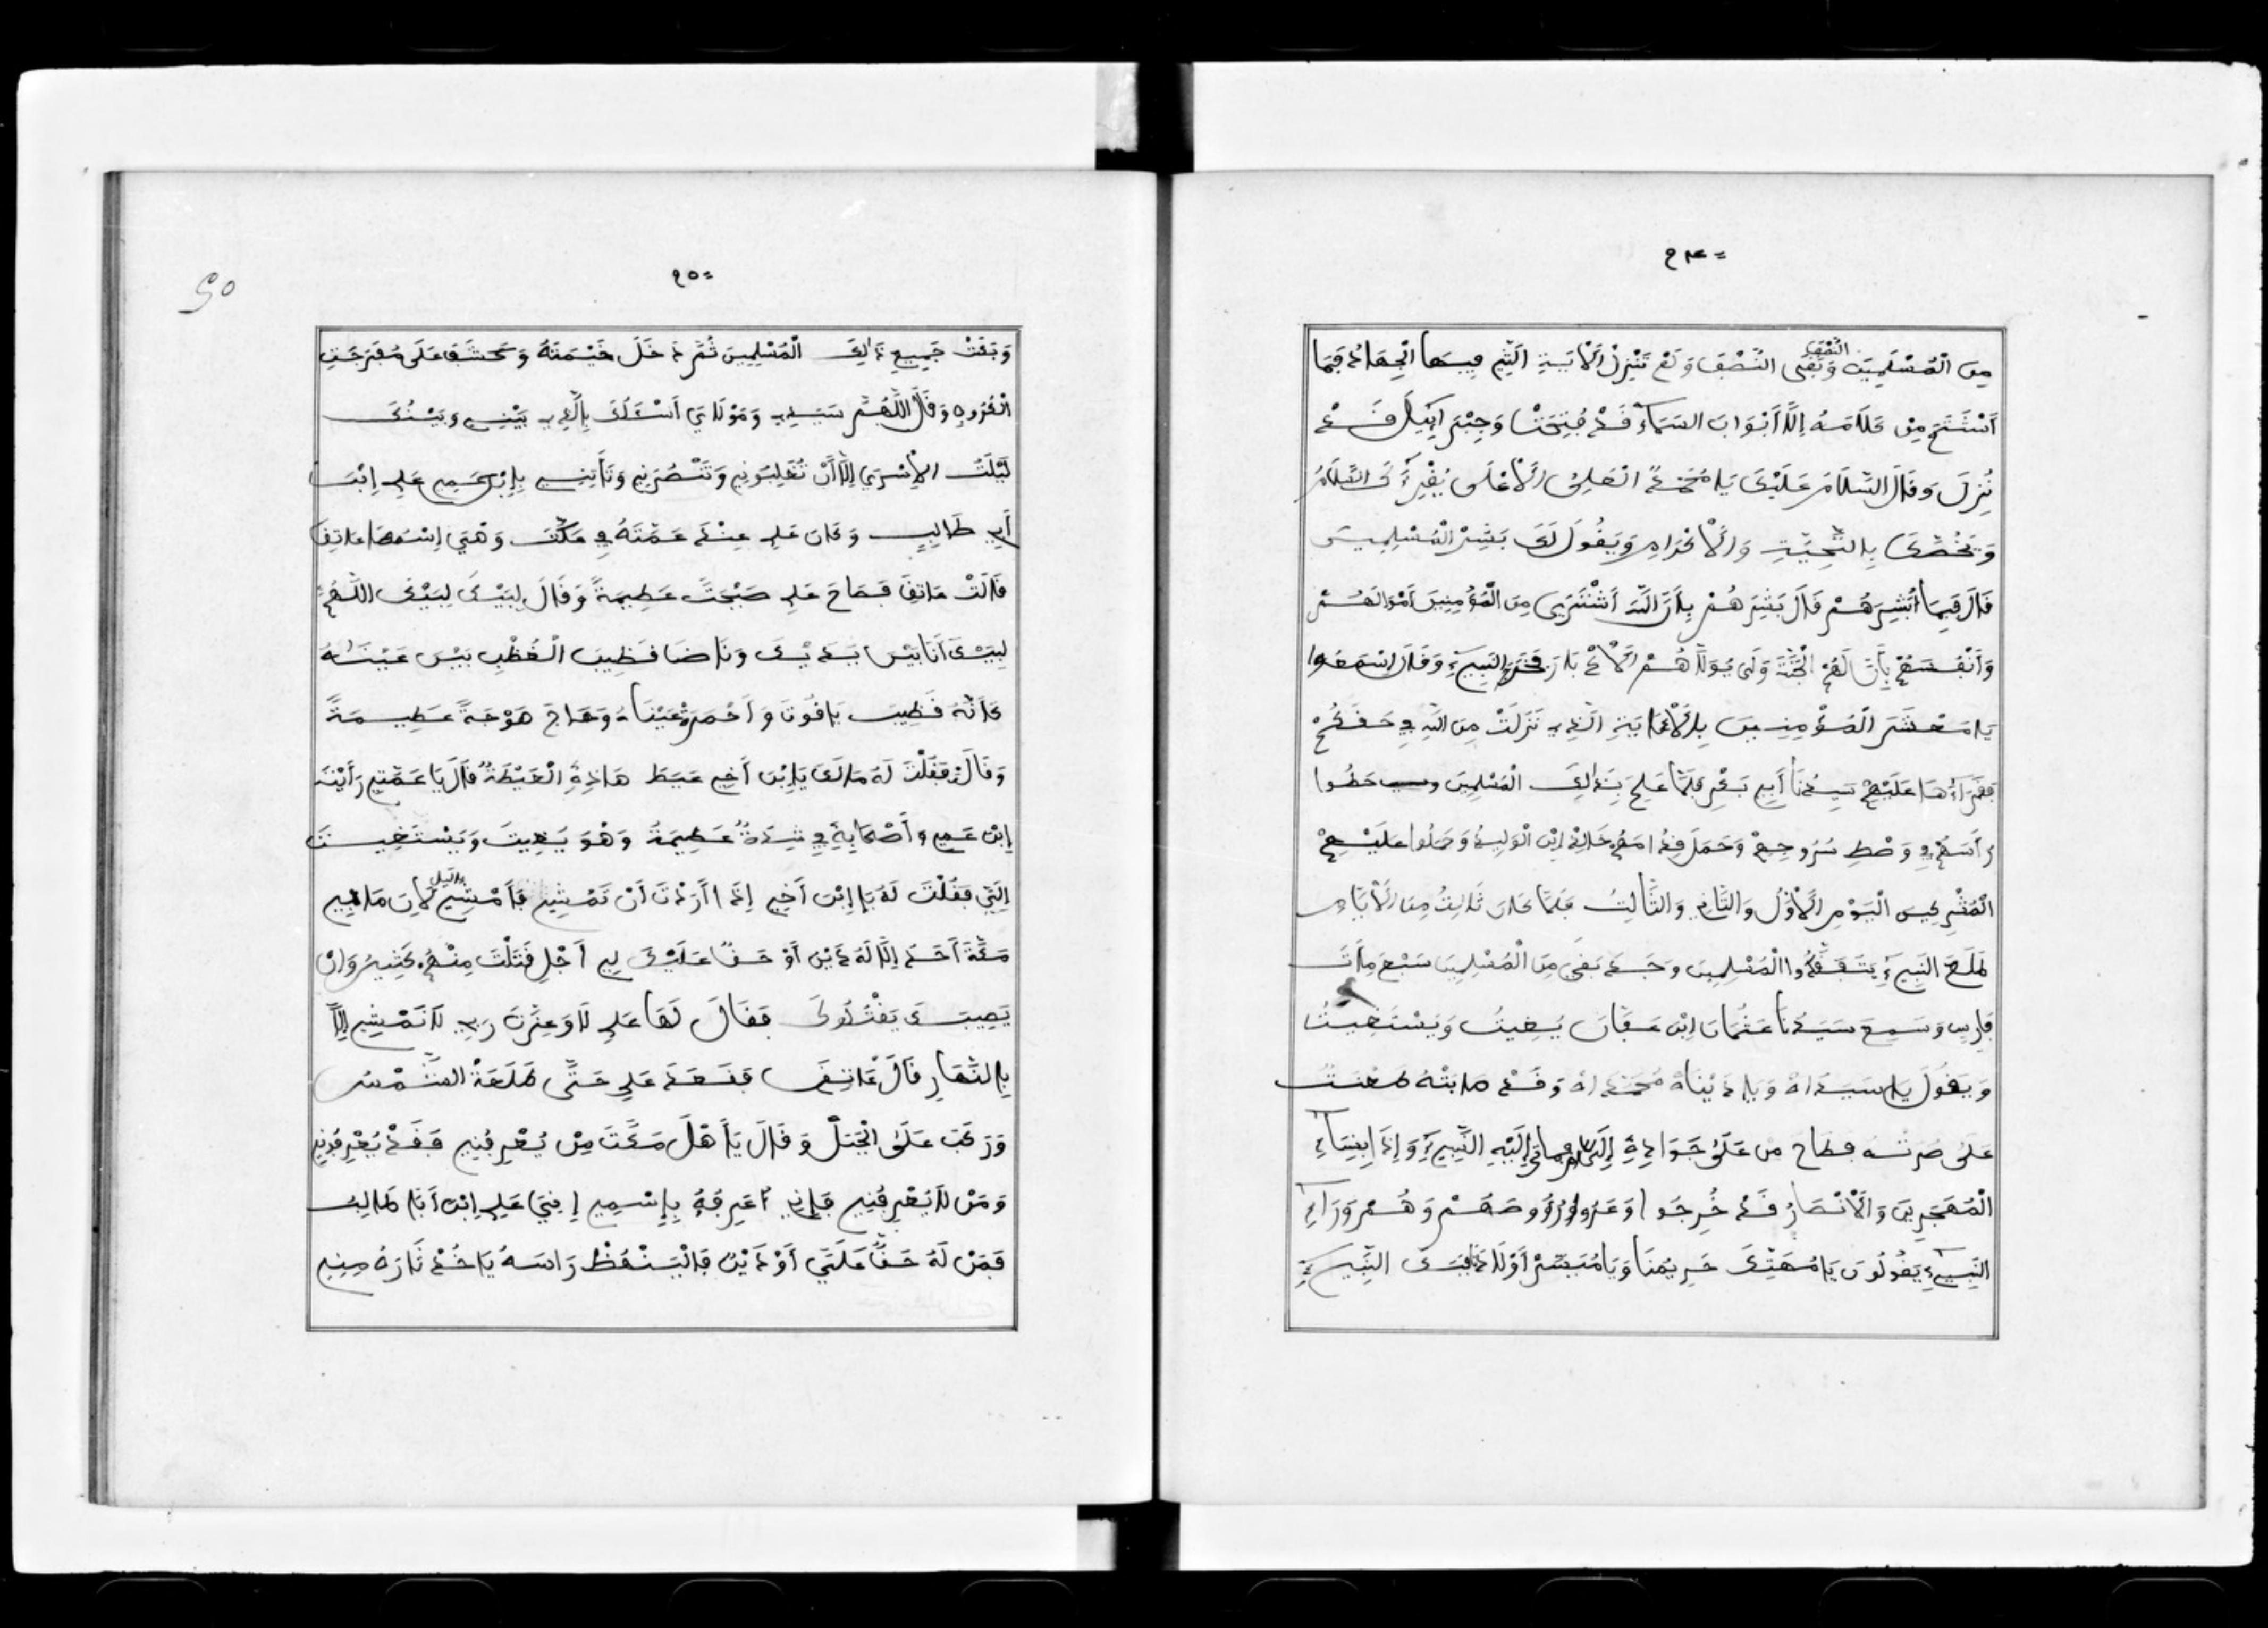 ٩٤=
مِنَ الْمُسْلِمِينَ وَبَقَى النِّصْفَ وَلَمْ تَنْزِلْ الْأَيَةِ الَّتِي فِيهَا الْجِهَادُ فَمَا
أَسْتَتَمَّ مِنْ كَلَامَهُ إِلَّا أَبْوَابَ السَّمَآءِ قَدْ فُتِحَتْ وَجِبْرَآئِيلَ قَدْ
نُزِلَ وَقَالَ السَّلَامُ عَلَيْكَ يَا مُحَمَّدُ الْعَلِيُّ الْأَعْلَى يُقْرِئُكَ السَّلَامُ
وَيَخُصُّكَ بِالتَّحِيَّةِ وَالْأَكْرَامِ وَيَقُولَ لَكَ بَشِّرْ الْمُسْلِمِينَ
قَالَ فِيمَا أُبَشِّرُهُمْ قَالَ بَشِّرَهُمْ بِأَنَّ اللَّهَ أَشْتَرِى مِنَ الْمُؤْمِنِينَ أَمْوَالَهُمْ
وَأَنْفُسَهُمْ بِأَنَّ لَهُمْ الْجَنَّةَ وَلَى يُوَلَّاهُمْ الْأَدْبَارَ فَخَرَجَ النَّبِيءِ وَقَالَ اسْمَعُوا
يَا مَعْشَرَ الْمُؤْمِنِينَ بِالْأَيَةِ الَّذِي نَزَلَتْ مِنَ اللَّهِ فِي حَقِّكُمْ
فَقَرَأَهَا عَلَيْهِمْ سَيِّدُنَا أَبِي بَكْرٍ فَلَمَّا عَلِمَ بِذَالِكَ الْمُسْلِمِينَ وحَطُوا
رَأْسَهُمْ فِي وَصْطِ سُرُوجِهِمْ وَحَمَلَ قِدَامَهُمْ خَالِدْ ابْنَ الْوَلِيدُ وَحَمَلُوا عَلَيْهِمْ
الْمُشْرِكِينَ الْيَوْمِ الْأَوَّلُ وَالثَّانِي وَالثَّالِثُ فَلَمَّا كَانَ ثَالِثُ مِنَ الْأَيَّامِ
طَلَعَ النَّبِيءِ يَتَفَقَّدُوا الْمُسْلِمِينَ وَجَدَ بَقَيَ مِنَ الْمُسْلِمِينَ سَبْعَ مِأَتَ
فَارِسِ وَسَمِعَ سَيِّدُنَا عُثْمَانَ ابْنَ عَفَّانَ يُغِيثُ وَيَسْتَغِيثُ
وَيَقُولَ يَا سَيِّدَاهْ وَيَا دَيْنَاهْ مُحَمَّدَاهْ وَقَدْ مَابَتْهُ طَعْنَتُ
عَلَى صُرَتُهُ فَطَاحَ مِنْ عَلَى جَوَادِهِ إِلَى إِلَيْهِ النَّبِيءِ وَإِذَا بِنِسَآءِ
الْمُهَجِرِينَ وَالْأَنْصَارُ قَدْ خُرِجَوا وَعَرُوا رُؤُوصَهُمْ وَهُمْ وَرَآءِ
النَّبِيءِ يَقُولُونَ يَا مُهَتِّكَ حَرِيمَنَا وَيَا مُيَتِّمْ أَوْلَادَنَا فَبَكَى النَّبِيءِ
٩٥=
وَبَقَتْ جَمِيعِ ذَالِكَ الْمُسْلِمِينَ ثُمَّ دَخَلَ خَيْمَتَهُ وَكَشَفَ عَلَى مُفَرَجَتِ
الْكُرُوبِ وَقَالَ اللَّهُمَّ سَيِّدِي وَمَوْلَايَ أَسْئَلُكَ بِالَّذِي بَيْنِي وَبَيْنُكَ
لَيْلَتُ الْإِسْرَى إِلَّا أَنْ تُغَلِبُونِي وَتَنْصُرَنِي وَتَأْتِينِي بِإِبْنِ عَمِّي عَلِي اِبْنَ
أَبِي طَالِبٍ وَكَانَ عَلِي عِنْدَ عَمَّتَهُ فِي مَكَّتَ وَهْيَ إِسْمُهَا عَاتِقَ
قَالَتْ عَاتِقَ فَصَاحَ عَلِي صَيْحَتً عَظِيمَةً وَقَالَ لِبَيْكَ لِبَيْكَ اللَّهُمَّ
لِبَيْكَ أَنَا بَيْنَ يَدَيْكَ وَنَاضَا قَظِيبَ الْغُظْبِ بَيْنَ عَيْنَيْهُ
كَأَنَّهُ قَظِيبَ يَاقُوتَ وَأَحْمَرَةْ عَيْنَاهُ وَهَاجَ هَوْجَةً عَظِيمَةً
وَقَالَتْ فَقُلْتُ لَهُ مَالَكَ يَا إِبْنَ أَخِي عَيَطَ هَاذِهِ الْعَيْطَةُ قَالَ يَا عَمَّتِي رَأَيْتَ
إِبْنَ عَمِّي وَأَصْحَابِهِ فِي شِدَةً عَظِيمَةً وَهُوَ يَغِيثَ وَيَسْتَغِيثَ
إِلَيَّ فَقُلْتَ لَهُ يَا إِبْنَ أَخِي إِذَا أَرَدْتَ أَنْ تَمْشِي فَأَمْشِي بِالَّيْلِ لِأَنَّ مَا فِي
مَكَّةَ أَحَدَ إِلَّا لَهُ دَيْنَ أَوْ حَقًّا عَلَيْكَ لِي أَجْلِ قَتَلْتَ مِنْهُمْ كَثِيرُ وَإنْ
يَصِيبَكَ يَقْتُلُوكَ فَقَالَ لَهَا عَلِي لَا وَعِزَّتَ رَبِّي لَا نَمْشِي إِلَّا
بِالنَّهَارِ قَالَ عَاتِقَ فَقَعَدَ عَلِي حَتَّى طَلَعَةْ الشَّمْسُ
وَرَكَبَ عَلَى الْجَبَلْ وَقَالَ يَا أَهْلَ مَكَّتَ مِنْ يُعْرِفُنِي فَقَدْ يُعْرِفُنِي
وَمَنْ لَا يَعْرِفُنِي فَإِنِي أُعَرِفَهُ بِإِسْمِي إِنِّي عَلِي اِبْنَ أَبَا طَالِبُ
فَمَنْ لَهُ حَقًّا عَلَيَّ أَوْ دَيْنَ فَالْيَنْهَظْ رَاسَهُ يَاخُذْ ثَارَهُ مِنِي